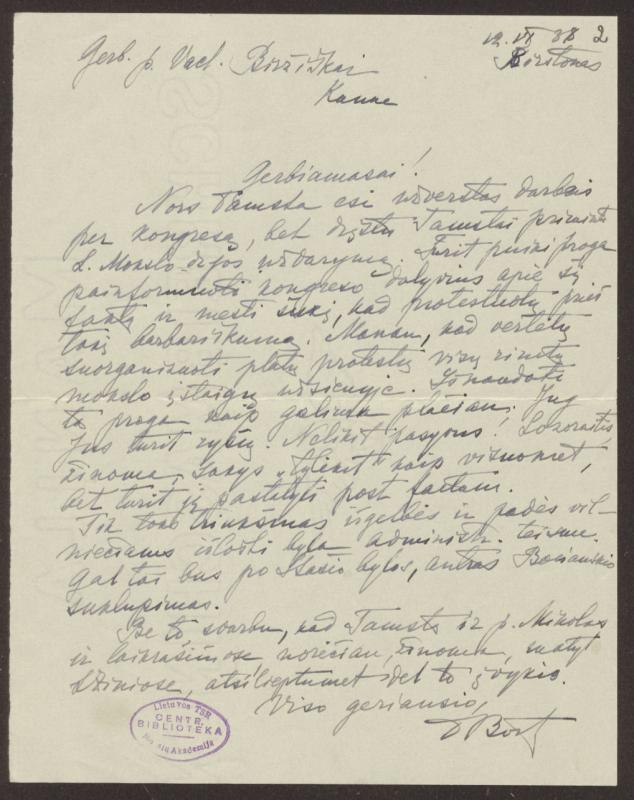 12. VI 38 2
Birštonas
Gerb. p. Vacl. Biržiškai
Kaune
Gerbiamasai!
Nors Tamsta esi užverstas darbais
per kongresą, bet drįstu Tamstai priminti
L. Mokslo d-jos uždarymą. Turit puikią progą
painformuoti kongreso dalyvius apie šį
faktą ir mesti šūkį, kad protestuotų prieš
tokį barbariškumą. Manau, kad vertėtų
suorganizuoti platų protestą visų rimtų
mokslo įstaigų užsienyje. Išnaudoti
tą progą kaip galima plačiau. Jug
Jūs turit ryšių. Nelikit pasyvus! Lozoraitis,
žinoma, sakys „tylėkit" kaip visuomet,
bet turit jį pastatyti post factum.
Tik toks triukšmas išgelbės ir padės vil-
niečiams išlošti bylą administr. teisme.
Gal tai bus po Stašio bylos, antras Bociańskio
suklupimas.
Be to, svarbu, kad Tamsta ir p. Mikolas
ir laikraščiuose norėčiau, žinoma, matyt
Žiniose, atsilieptumėt dėl to įvykio.
Viso geriausio,
Lietuvos TSR
CENTR.
BIBLIOTEKA
Mokslų Akademija